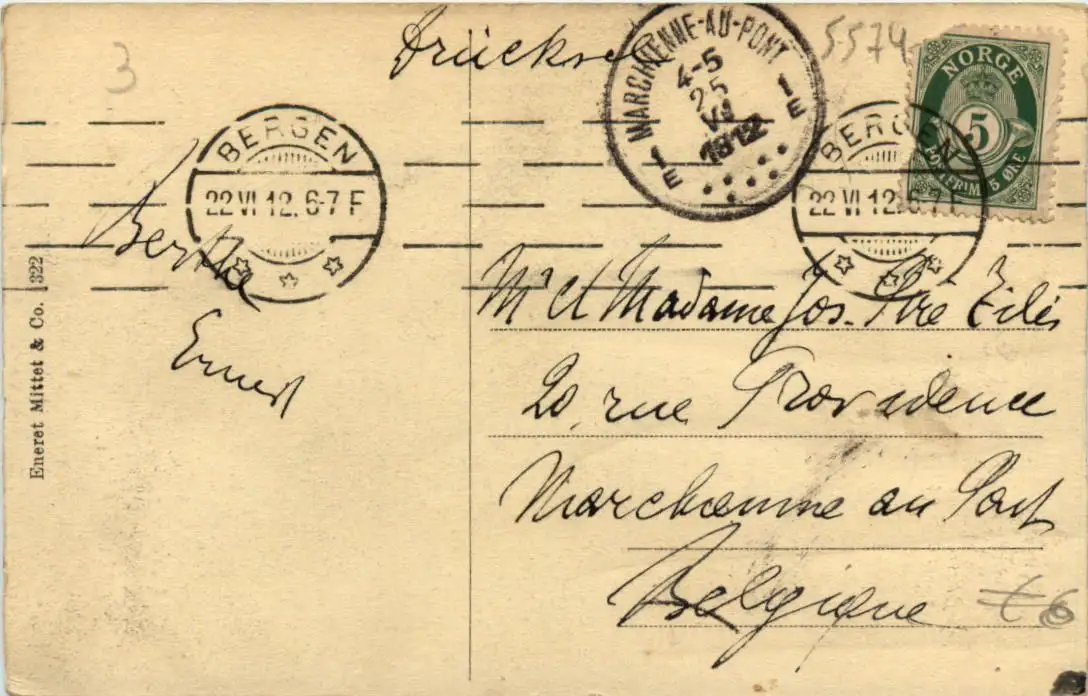 3
Drücksa
5574
MARCHIENNE-AU-PONT
4-5
25
VI
1912
1E
1E
NORGE
5
POSTFRIM. 5 ØRE
BERGEN
22 VI 12. 6-7 F
BERGEN
22 VI 12. 6-7 F
Berthe
Ernest
Eneret Mittet & Co. 322
Mr et Madame Jos. Piré
20, rue Providence
Marchienne au Pont
Belgique